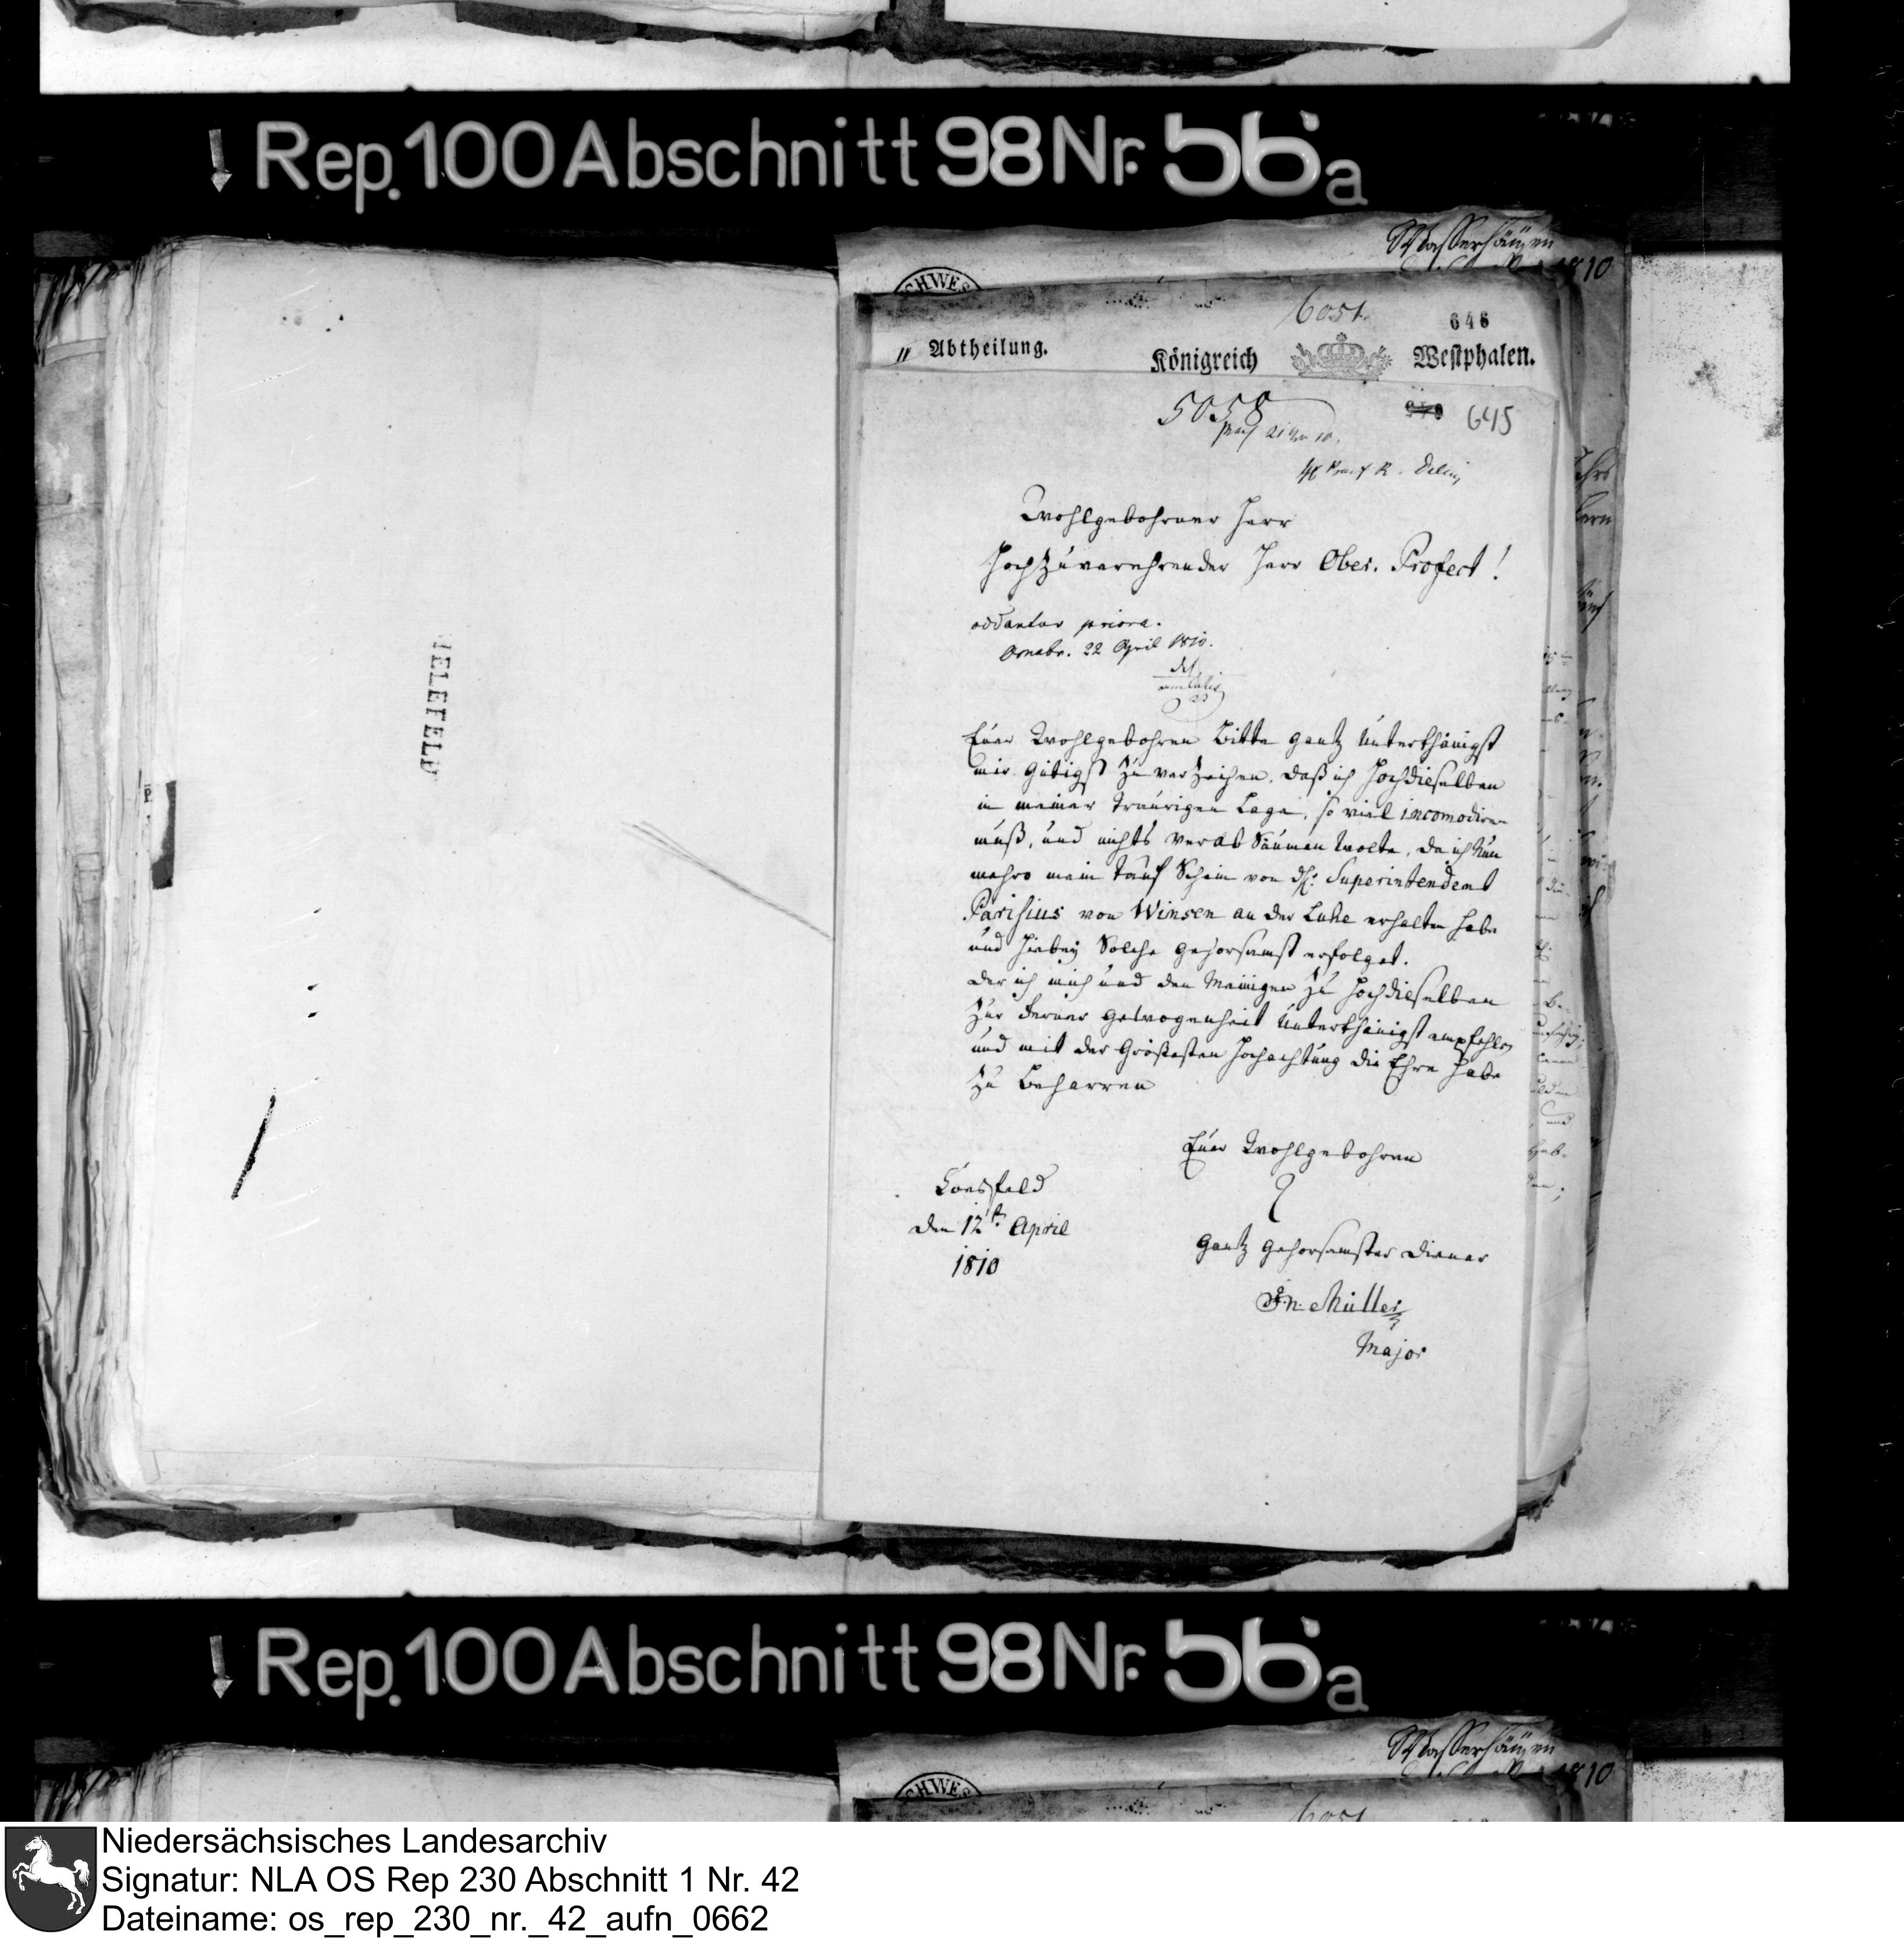 Rep. 100 Abschnitt 98 Nr. 56a
Wasserhäusen
1810
SCHWES
6051.
646
II Abtheilung.
Königreich Westphalen.
5058
645
Wohlgebohrner Herr
Hochzuverehrender Herr Ober. Præfect!
addantur priora.
Osnabr. 22 April 1810.
Euer Wohlgebohren Bitte gantz Unterthänigst
mir gütigst zu verzeihen, daß ich Hochdieselben
in meiner traurigen Lage, so viel incomodiren
muß, und nichts verab Säumen wolte, da ich Nun
mehro mein Tauf Schein von H: Superintendent
Parisius von Winsen an der Luhe erhalten habe
und hiebey Solche gehorsamst erfolget.
der ich mich und den Meinigen zu Hochdieselben
zur ferner gewogenheit Unterthänigst empfehle
und mit der Größesten Hochachtung die Ehre habe
zu Beharren
Euer Wohlgebohren
Coesfeld
den 12ten April
1810
gantz gehorsamster Diener
Müller
Major
IELEFELD
Rep. 100 Abschnitt 98 Nr. 56a
Wasserhäusen
1810
SCHWES
6051
Niedersächsisches Landesarchiv
Signatur: NLA OS Rep 230 Abschnitt 1 Nr. 42
Dateiname: os_rep_230_nr._42_aufn_0662